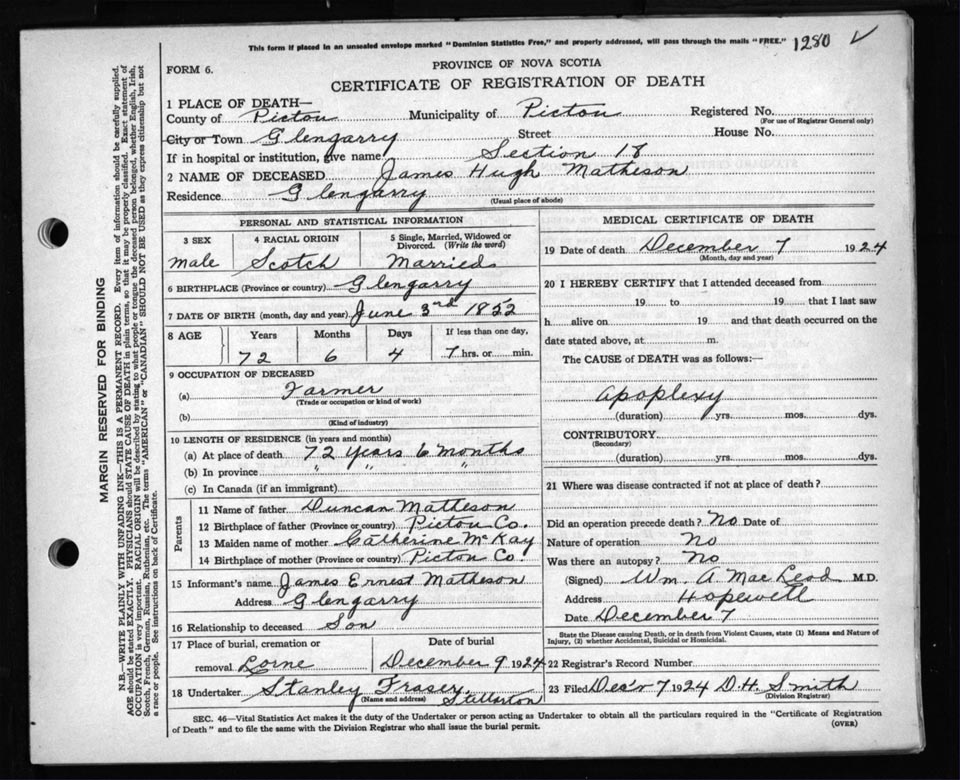 This form if placed in an unsealed envelope marked "Dominion Statistics Free," and properly addressed, will pass through the mails "FREE." 1280 ✓
PROVINCE OF NOVA SCOTIA
FORM 6.
CERTIFICATE OF REGISTRATION OF DEATH
MARGIN RESERVED FOR BINDING
N.B.—WRITE PLAINLY WITH UNFADING INK—THIS IS A PERMANENT RECORD. Every item of information should be carefully supplied.
AGE should be stated EXACTLY. PHYSICIANS should STATE CAUSE OF DEATH in plain terms, so that it may be properly classified. Exact statement of
OCCUPATION is very important. RACIAL ORIGIN will be described by stating to what people or tongue the deceased person belonged, whether English, Irish,
Scotch, French, German, Russian, Ruthenian, etc. The terms "AMERICAN" or "CANADIAN" SHOULD NOT BE USED as they express citizenship but not
a race or people. See instructions on back of Certificate.
1 PLACE OF DEATH—
County of Pictou Municipality of Pictou Registered No.
(For use of Registrar General only)
City or Town Glengarry Street House No.
If in hospital or institution, give name Section 18
2 NAME OF DECEASED James Hugh Matheson
Residence Glengarry
(Usual place of abode)
PERSONAL AND STATISTICAL INFORMATION
3 SEX 4 RACIAL ORIGIN 5 Single, Married, Widowed or Divorced. (Write the word)
male Scotch Married
6 BIRTHPLACE (Province or country) Glengarry
7 DATE OF BIRTH (month, day and year) June 3rd 1852
8 AGE Years Months Days If less than one day,
72 6 4 7 hrs. or min.
9 OCCUPATION OF DECEASED
(a) Farmer
(Trade or occupation or kind of work)
(b)
(Kind of industry)
10 LENGTH OF RESIDENCE (in years and months)
(a) At place of death 72 Years 6 months
(b) In province " " "
(c) In Canada (if an immigrant)
Parents
11 Name of father Duncan Matheson
12 Birthplace of father (Province or country) Pictou Co.
13 Maiden name of mother Catherine McKay
14 Birthplace of mother (Province or country) Pictou Co
15 Informant's name James Ernest Matheson
Address Glengarry
16 Relationship to deceased Son
17 Place of burial, cremation or Date of burial
removal Lorne December 9 1924
18 Undertaker Stanley Fraser, Stellarton
(Name and address)
MEDICAL CERTIFICATE OF DEATH
19 Date of death December 7 1924
(Month, day and year)
20 I HEREBY CERTIFY that I attended deceased from
19 to 19 that I last saw
h alive on 19 and that death occurred on the
date stated above, at m.
The CAUSE of DEATH was as follows:—
apoplexy
(duration) yrs. mos. dys.
CONTRIBUTORY
(Secondary)
(duration) yrs. mos. dys.
21 Where was disease contracted if not at place of death?
Did an operation precede death? No Date of
Nature of operation No
Was there an autopsy? No
(Signed) Wm. A MacLeod M.D.
Address Hopewell
Date December 7
State the Disease causing Death, or in death from Violent Causes, state (1) Means and Nature of
Injury, (2) whether Accidental, Suicidal or Homicidal.
22 Registrar's Record Number
23 Filed Dec'r 7 1924 D.H. Smith
(Division Registrar)
SEC. 46—Vital Statistics Act makes it the duty of the Undertaker or person acting as Undertaker to obtain all the particulars required in the "Certificate of Registration
of Death" and to file the same with the Division Registrar who shall issue the burial permit. (OVER)